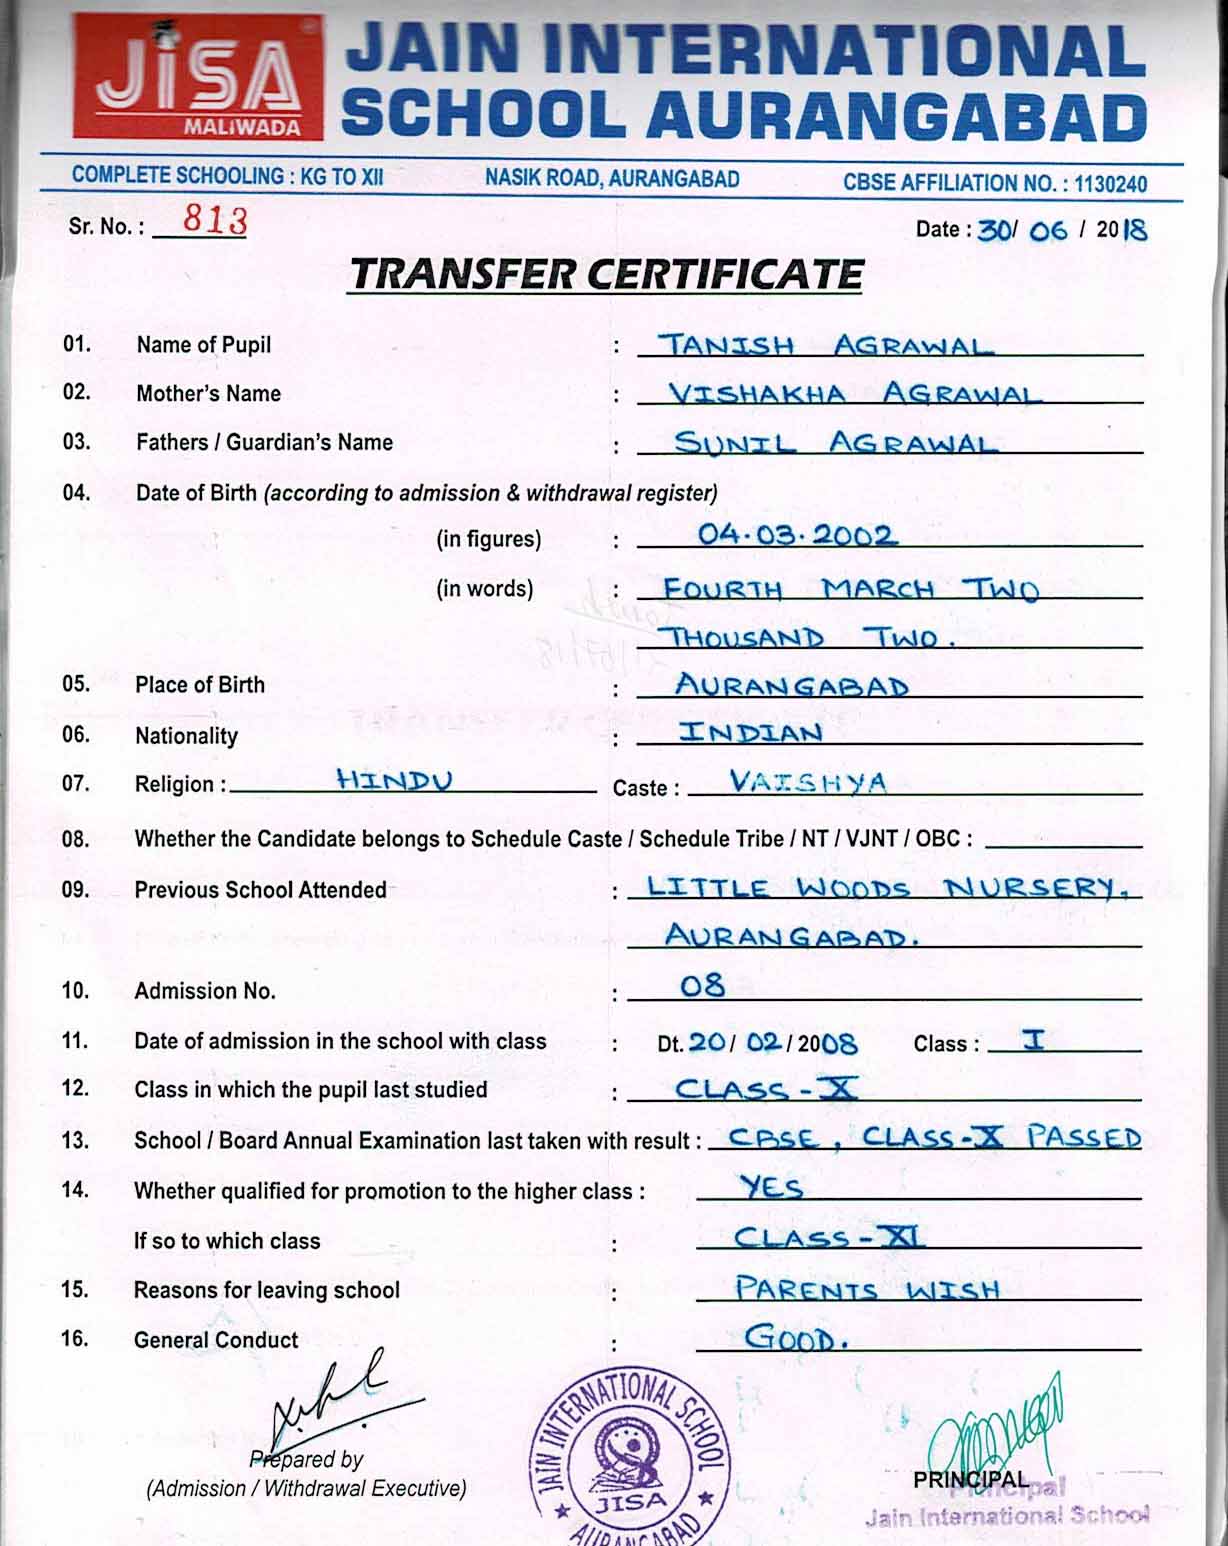 JiSA
MALiWADA
JAIN INTERNATIONAL
SCHOOL AURANGABAD
COMPLETE SCHOOLING : KG TO XII NASIK ROAD, AURANGABAD CBSE AFFILIATION NO. : 1130240
Sr. No. : 813 Date : 30/ 06 / 2018
TRANSFER CERTIFICATE
01. Name of Pupil : TANISH AGRAWAL
02. Mother's Name : VISHAKHA AGRAWAL
03. Fathers / Guardian's Name : SUNIL AGRAWAL
04. Date of Birth (according to admission & withdrawal register)
(in figures) : 04.03.2002
(in words) : FOURTH MARCH TWO
THOUSAND TWO.
05. Place of Birth : AURANGABAD
06. Nationality : INDIAN
07. Religion : HINDU Caste : VAISHYA
08. Whether the Candidate belongs to Schedule Caste / Schedule Tribe / NT / VJNT / OBC :
09. Previous School Attended : LITTLE WOODS NURSERY,
AURANGABAD.
10. Admission No. : 08
11. Date of admission in the school with class : Dt. 20/ 02 / 2008 Class : I
12. Class in which the pupil last studied : CLASS - X
13. School / Board Annual Examination last taken with result : CBSE, CLASS-X PASSED
14. Whether qualified for promotion to the higher class : YES
If so to which class : CLASS - XI
15. Reasons for leaving school : PARENTS WISH
16. General Conduct : GOOD.
Prepared by
(Admission / Withdrawal Executive)
JAIN INTERNATIONAL SCHOOL
JISA
AURANGABAD
PRINCIPAL
Principal
Jain International School